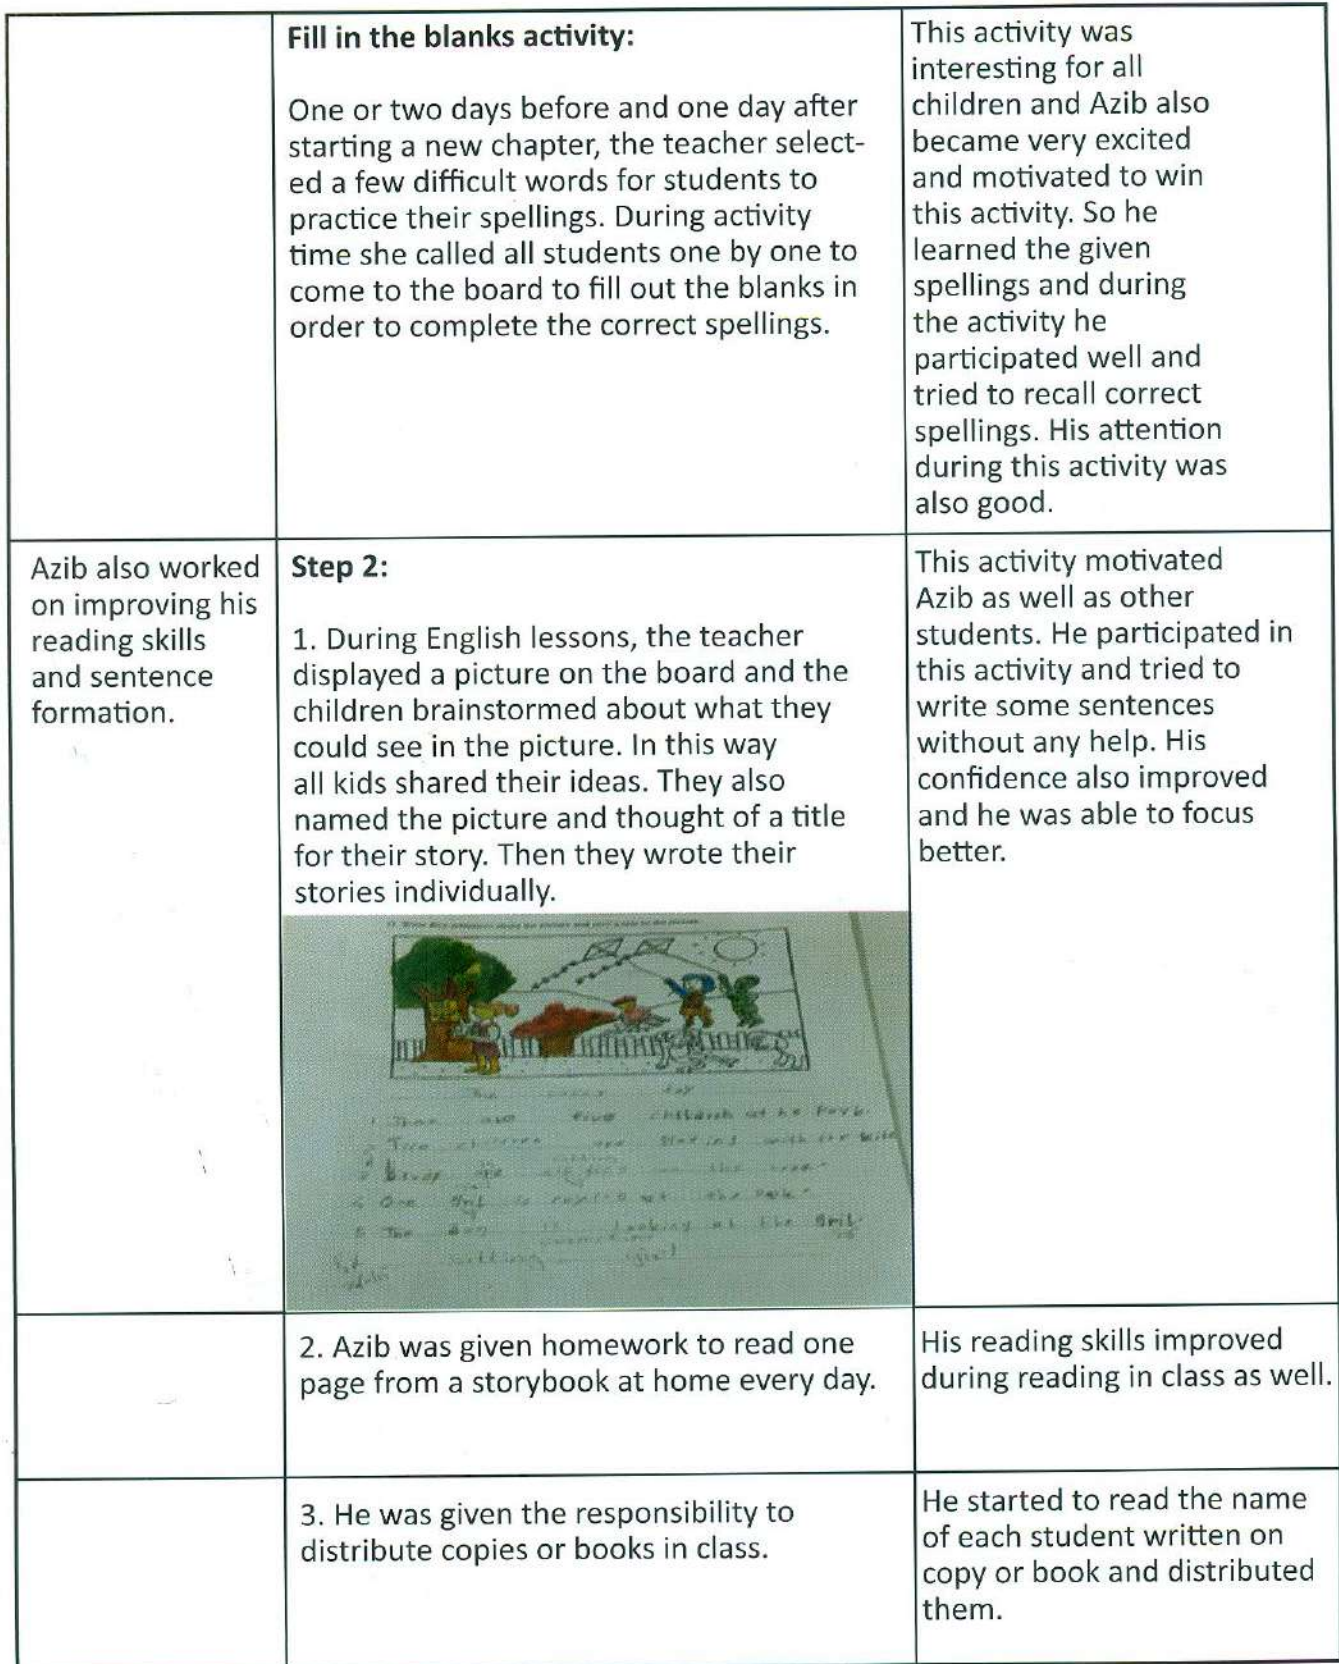 Fill in the blanks activity:
One or two days before and one day after
starting a new chapter, the teacher select-
ed a few difficult words for students to
practice their spellings. During activity
time she called all students one by one to
come to the board to fill out the blanks in
order to complete the correct spellings.
This activity was
interesting for all
children and Azib also
became very excited
and motivated to win
this activity. So he
learned the given
spellings and during
the activity he
participated well and
tried to recall correct
spellings. His attention
during this activity was
also good.
Azib also worked
on improving his
reading skills
and sentence
formation.
Step 2:
1. During English lessons, the teacher
displayed a picture on the board and the
children brainstormed about what they
could see in the picture. In this way
all kids shared their ideas. They also
named the picture and thought of a title
for their story. Then they wrote their
stories individually.
five at
children with
the
4 One is at the
5 The looking at the
sitting girl
This activity motivated
Azib as well as other
students. He participated in
this activity and tried to
write some sentences
without any help. His
confidence also improved
and he was able to focus
better.
2. Azib was given homework to read one
page from a storybook at home every day.
His reading skills improved
during reading in class as well.
3. He was given the responsibility to
distribute copies or books in class.
He started to read the name
of each student written on
copy or book and distributed
them.